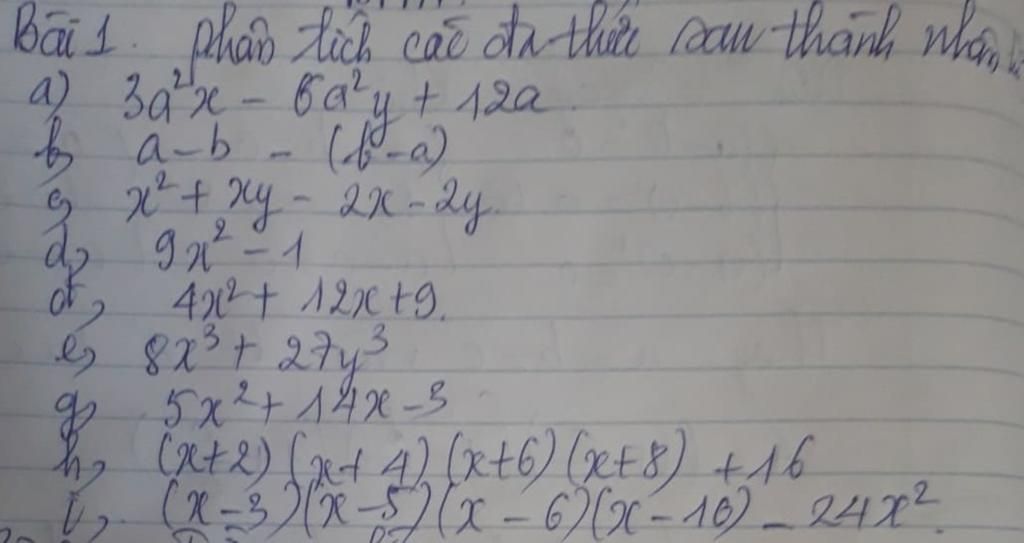 Bài 1. phân tích các đa thức sau thành nhân
a) 3a²x - 6a²y + 12a
b, a - b - (b - a)
c, x² + xy - 2x - 2y.
d, 9x² - 1
đ, 4x² + 12x + 9.
e, 8x³ + 27y³
g, 5x² + 14x - 3
h, (x+2)(x+4)(x+6)(x+8) + 16
i, (x - 3)(x - 5)(x - 6)(x - 10) - 24x².